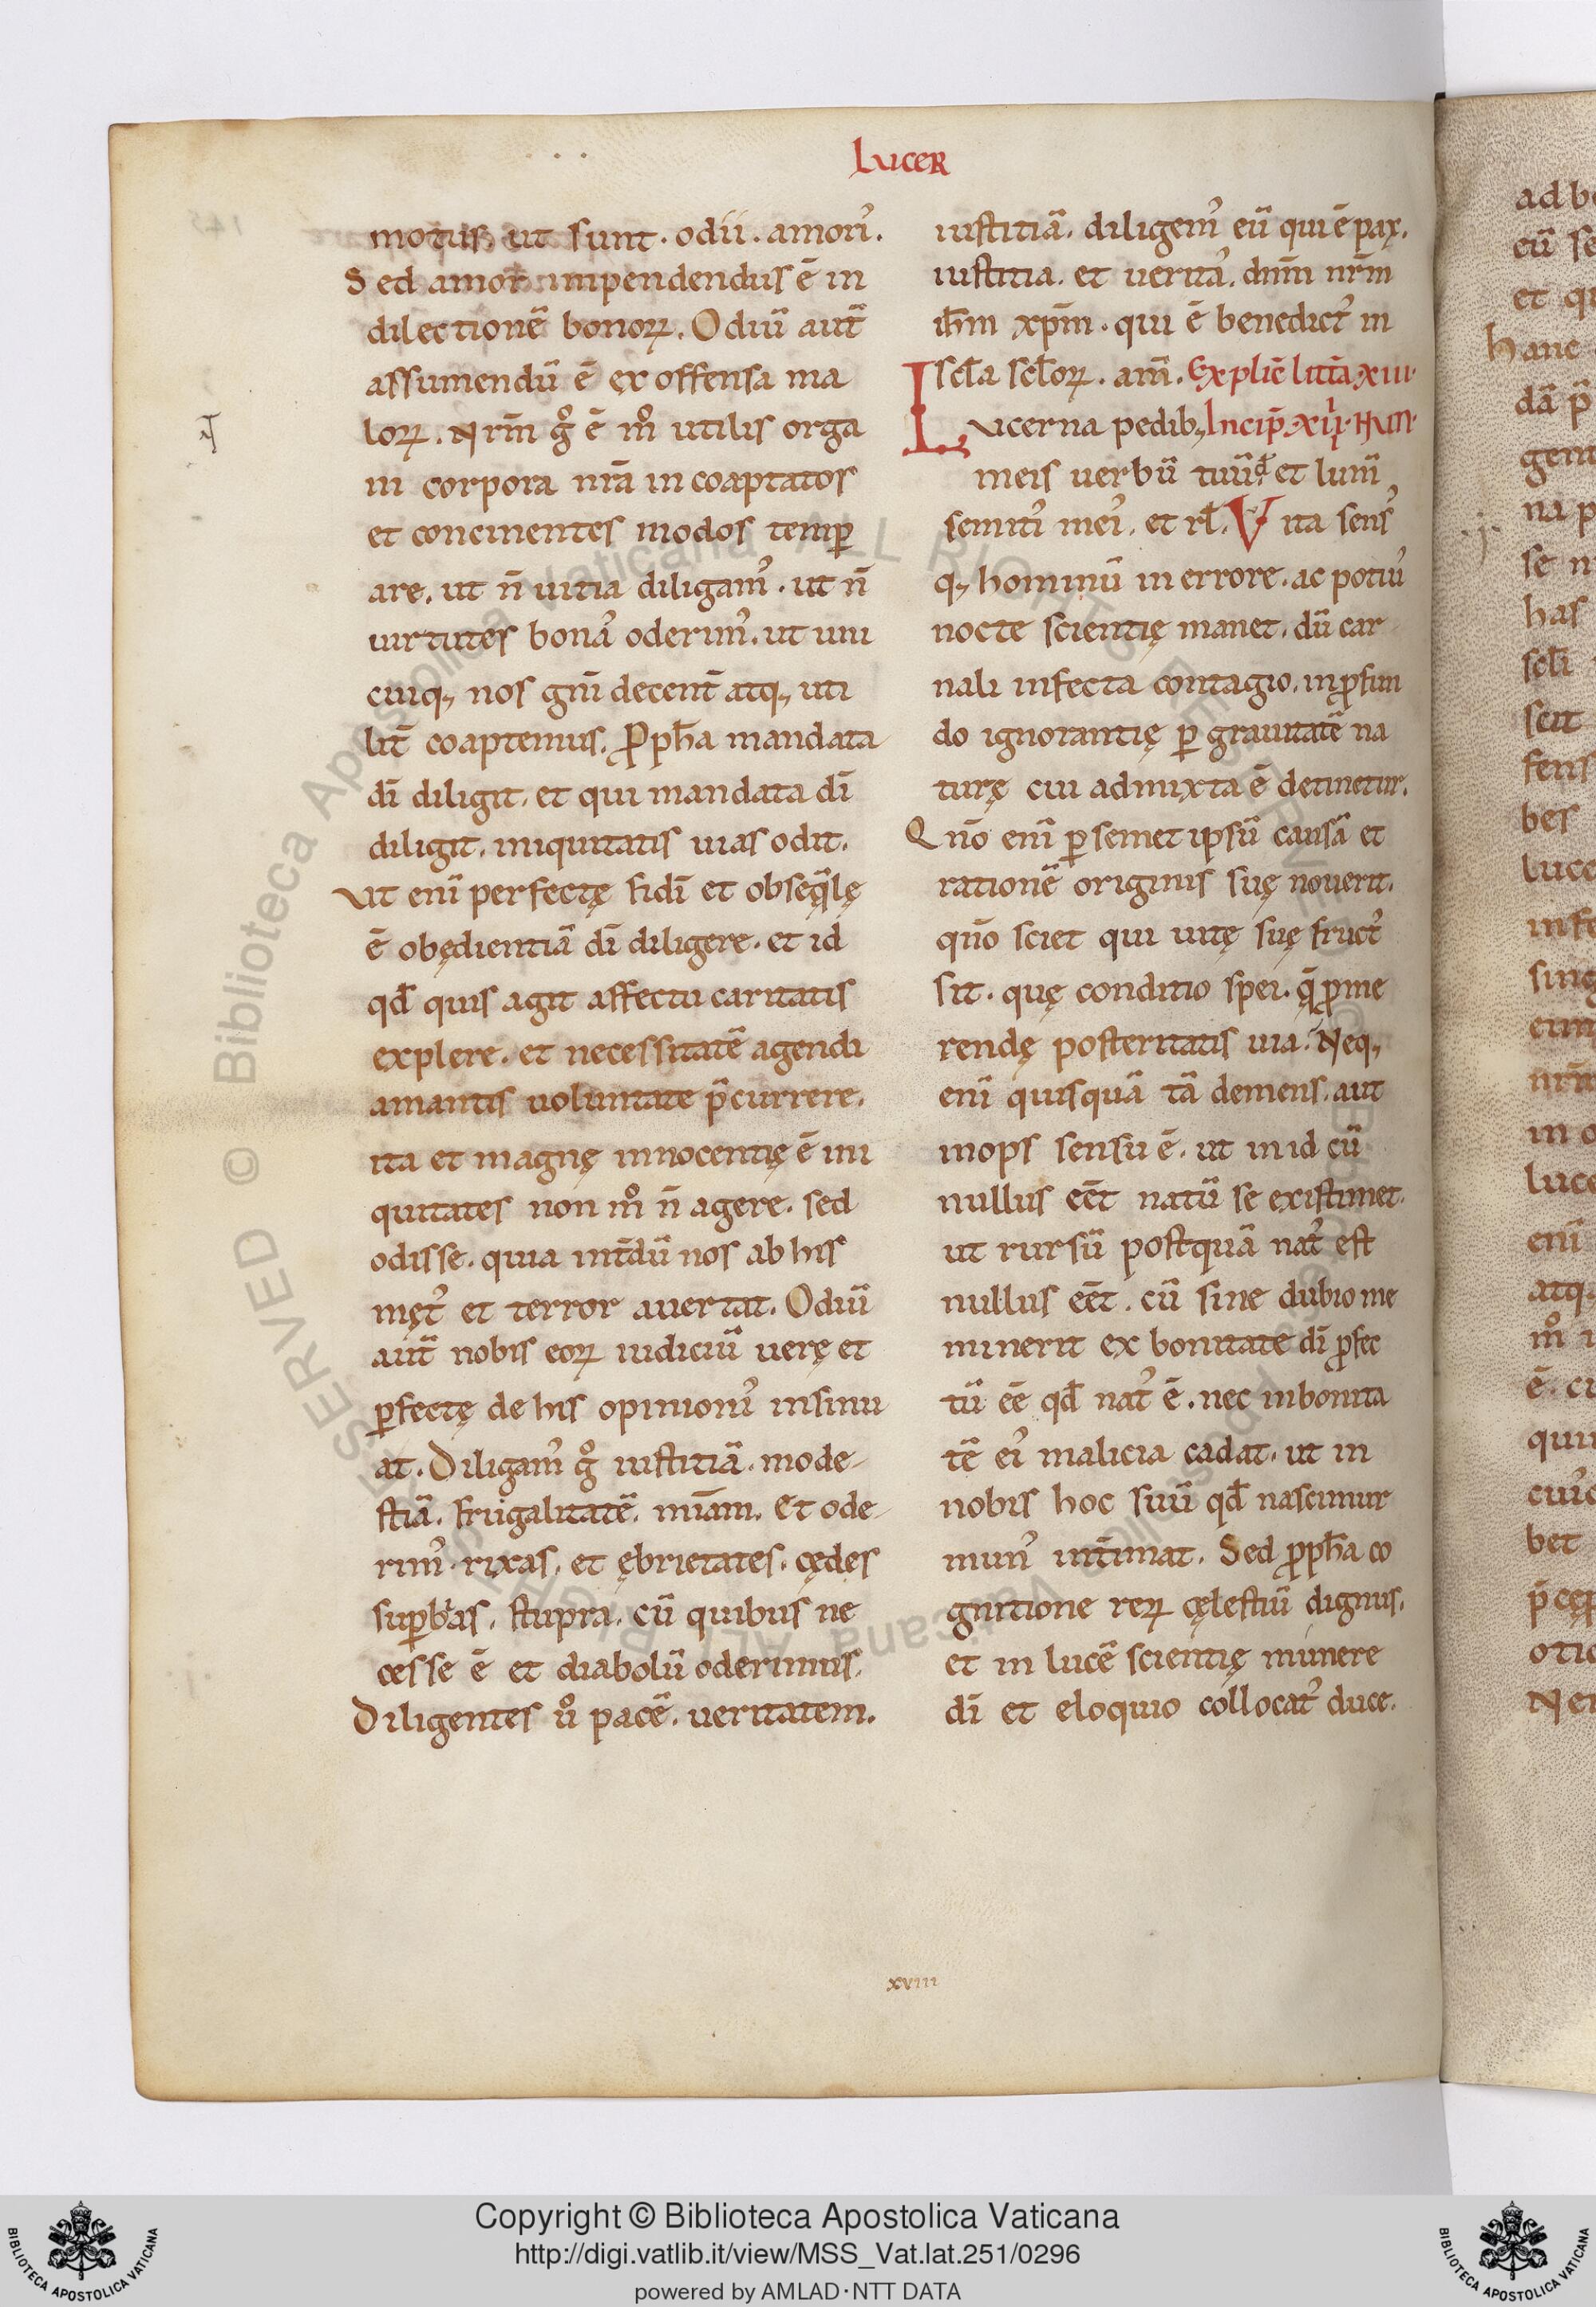 Lucer
motus, ut sunt. odii. amoriˀ.
Sed amor impendendus ē in
dilectionē bonoꝝ. Odiū aut̄
assumendū ē ex offensa ma
loꝝ. Nrm̄ gͦ ē mͦ utilis orga
ni corpora nrā in coaptatos
et concinentes modos temꝑ
are. ut n̄ uitia diligamˀ. ut n̄
uirtutes bonaˀ oderimˀ. ut uni
cuiq; nos gni̅ decent̄ atq; uti
lit̄ coaptemus. Ꝓph̄a mandata
dī diligit. et qui mandata dī
diligit. iniquitatis uias odit.
Ut enī perfectę fidī et obseq̄lę
ē obędientiā dī diligere. et id
qd̄ quis agit affectu caritatis
explere. et necessitatē agendi
amantis uoluntate p̄currere.
ita et magnę innocentię ē ini
quitates non mͦ n̄ agere. sed
odisse. quia int̄dū nos ab his
mętˀ et terror auertat. Odiū
aut̄ nobis eoꝝ iudiciū uerę et
ꝑfectę de his opinioniˀ insinu
at. Diligamˀ gͦ iustitiā. mode-
stiā. frugalitatē. miām. Et ode-
rimˀ. rixas. et ębrietates. cędes
suꝑbias. stupra. cū quibus ne
cesse ē et diabolū oderimus.
Diligentes uͦ pacē. ueritatem.
iustitiā. diligemˀ eū qui ē pax.
iustitia. et ueritaˀ. dnm̄ nrm̄
ih̄m xp̄m. qui ē benedictˀ in
scła scłoꝝ. am̄. Explic̄ litt̄a xiii.
Lucerna pedib; Incip̄ xiiii. Nun.
meis uerbū tuū.dˉ et lum̄
semitiˀ meiˀ. et rł. Vita sensˀ
q; hominū in errore. ac potiuˀ
nocte scientię manet. dū car
nali infecta contagio. in ꝓfun
do ignorantię ꝑ grauitatē na
turę cui admixta ē detinetur.
Qn̄o enī ꝑ semet ipsū causā et
rationē originis suę nouerit.
qn̄o sciet qui uitę suę fructˀ
sit. quę conditio spei. q̄ ꝓme
rendę posteritatis uia. Neq;
enī quisquā tā demens. aut
inops sensu ē. ut in id cū
nullus eēt natū se existimet.
ut rursū postquā natˀ est
nullus eēt. cū sine dubio me
minerit ex bonitate dī ꝓfec
tū eē qd̄ natˀ ē. nec in bonita
tē eiˀ malicia cadat. ut in
nobis hoc suū qd̄ nascimur
munˀ int̄imat. Sed ꝓph̄a co
gnitione reꝝ cęlestiū dignus.
et in lucē scientię munere
dī et eloquio collocatˀ duce.
xviii
Copyright © Biblioteca Apostolica Vaticana
http://digi.vatlib.it/view/MSS_Vat.lat.251/0296
powered by AMLAD·NTT DATA